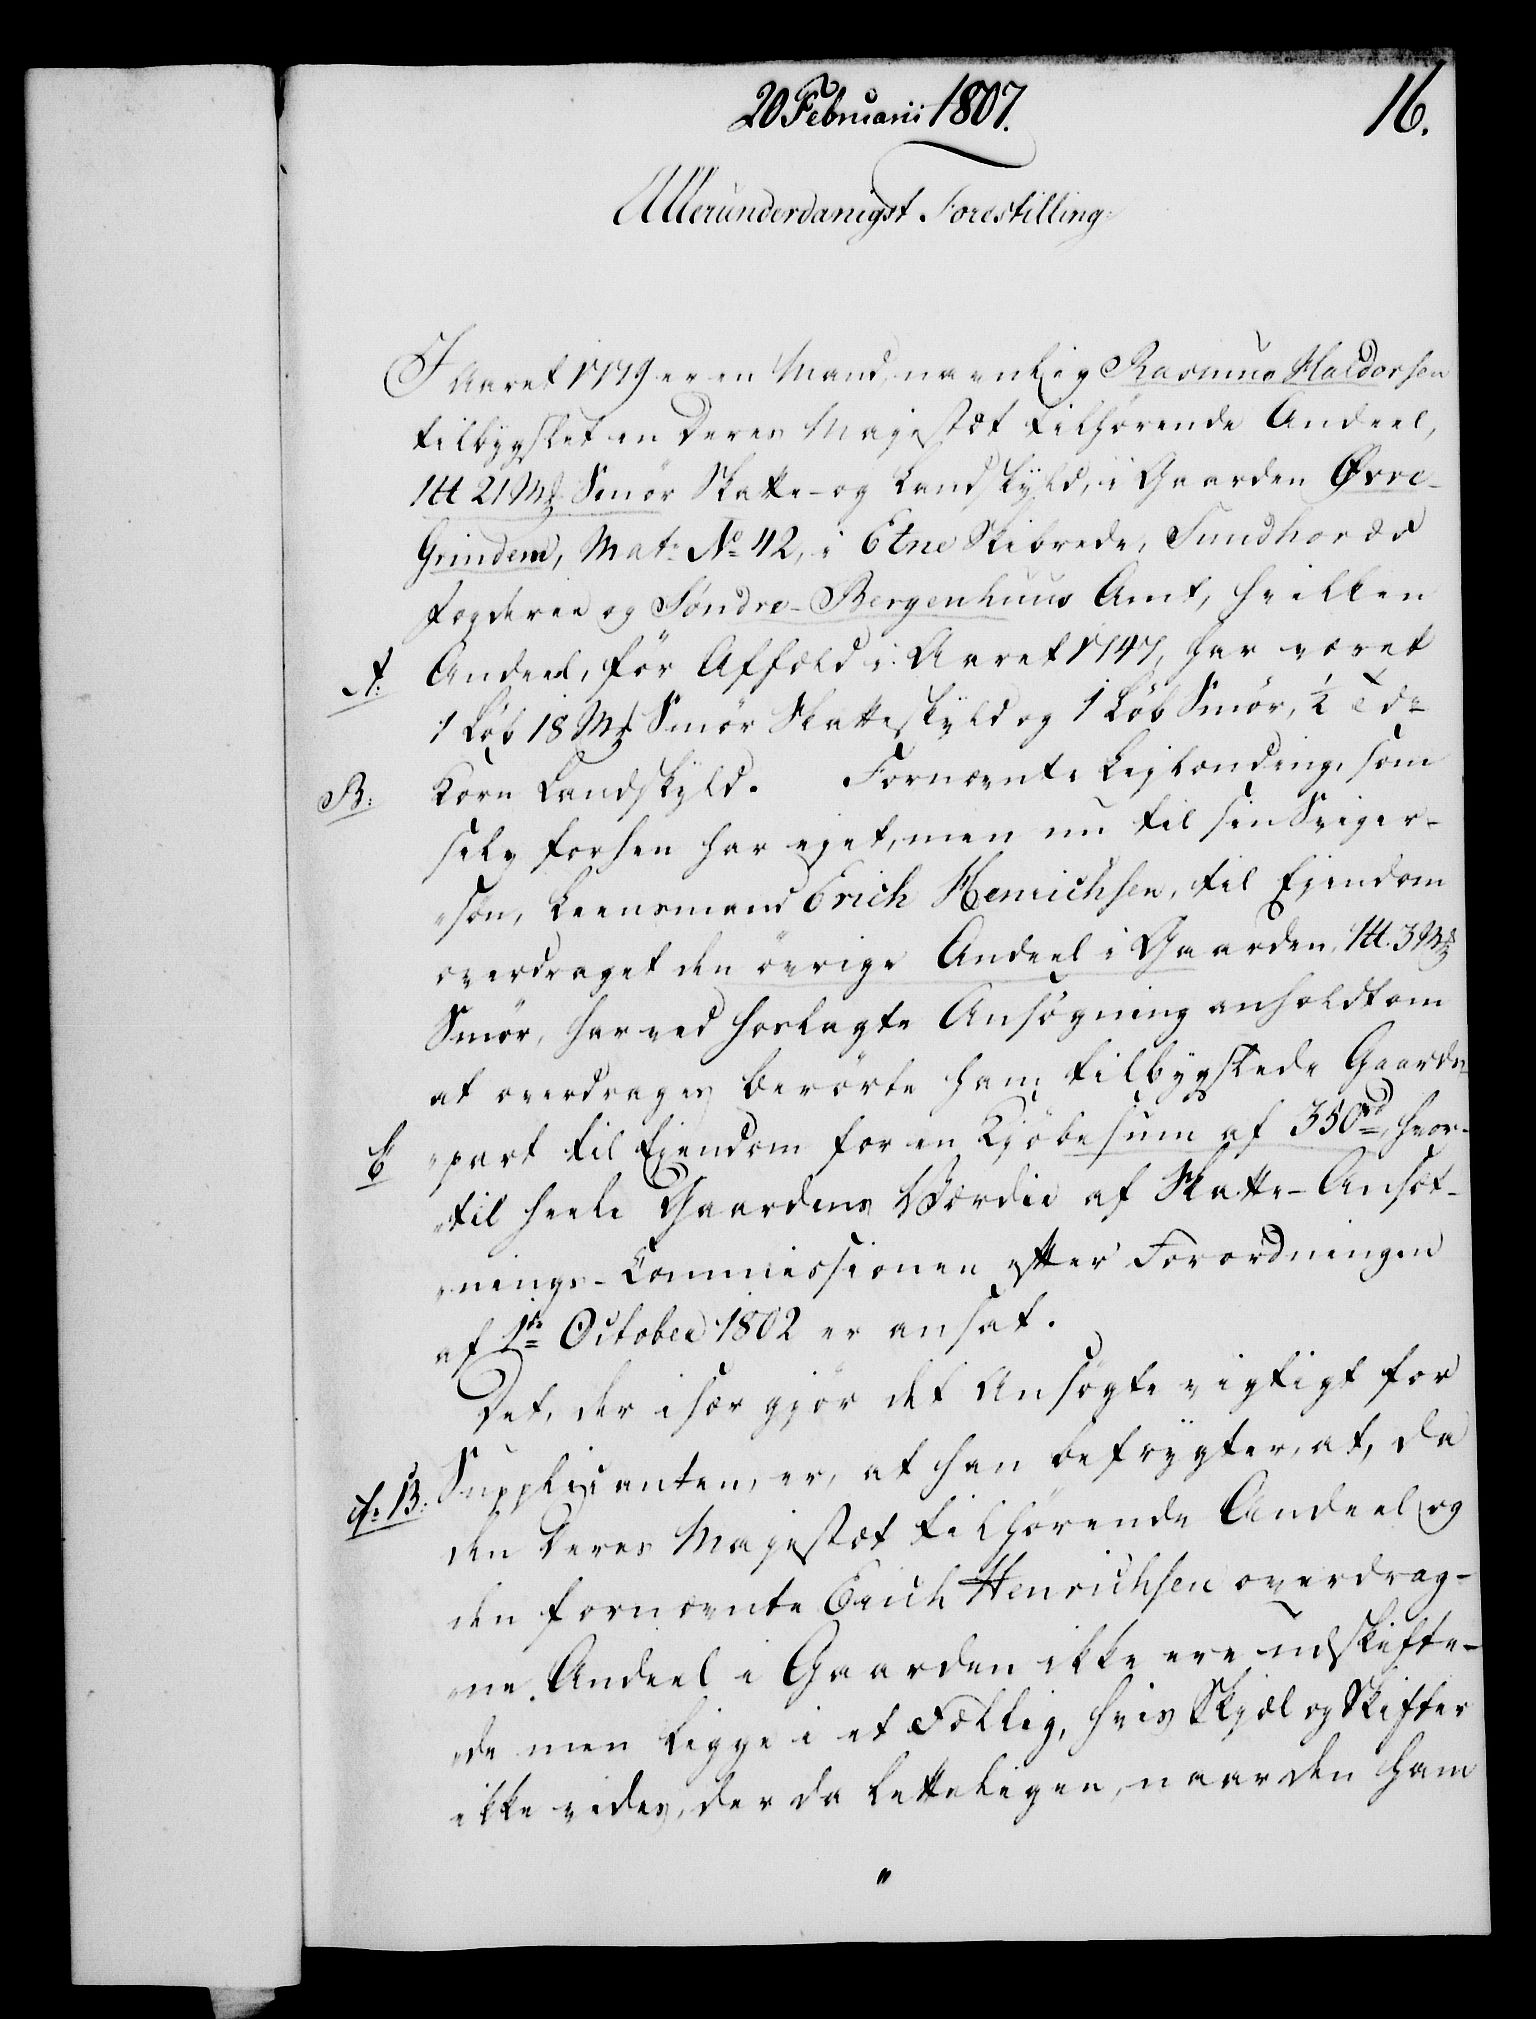 20 Februarii 1807.
16.
Allerunderdanigst Forestilling:
I Aaret 1779 er en Mand, navnlig Rasmus Haldorsen
tilbygslet en Deres Majestæt tilhørende Andeel,
1 ℔ 21 Mk Smør Skatte- og Landskyld, i Gaarden Øvre-
Grindem, Matr: No 42, i Etne Skibrede, Sundhordlands
Fogderie og Søndre-Bergenhuus Amt, hvilken
A: Andeel, før Affæld i Aaret 1747, har været
1 Løb 18 Mk Smør Skatteskyld og 1 Løb Smør, ½ Tde
B: Korn Landskyld. Fornævnte Leilænding, som
selv forhen har ejet, men nu til sin Sviger-
søn, Leensmand Erich Henrichsen, til Ejendom
overdraget den øvrige Andeel i Gaarden, 1 ℔ 3 Mk
Smør, har ved hoslagte Ansøgning anholdt om
at overdrages berørte ham tilbygslede Gaards-
b part til Ejendom for en Kjøbesum af 350 rd, hvor-
til heele Gaardens Værdie af Skatte-Ansæt-
nings-Commissionen efter Forordningen
af 1te October 1802 er ansat.
Det, der især gjør det Ansøgte vigtigt for
cfr. B: Supplicanten, er, at han befrygter, at, da
den Deres Majestæt tilhørende Andeel og
den fornævnte Erich Henrichsen overdrag-
ne Andeel i Gaarden ikke ere udskifte-
de men ligge i et Fællig, hvis Skjæl og Skifter
ikke vides, der da letteligen, naar den ham
"